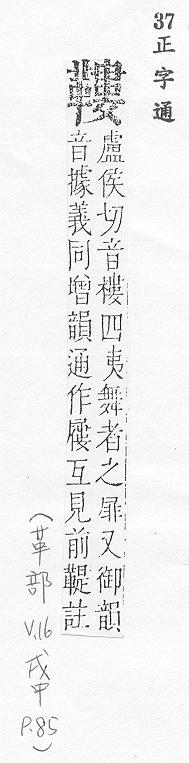 37
正字通
鞻
盧侯切音樓四夷舞者之屝又御韻
音據義同增韻通作屨互見前鞮註
(革部
V.16
戌甲
P.85)